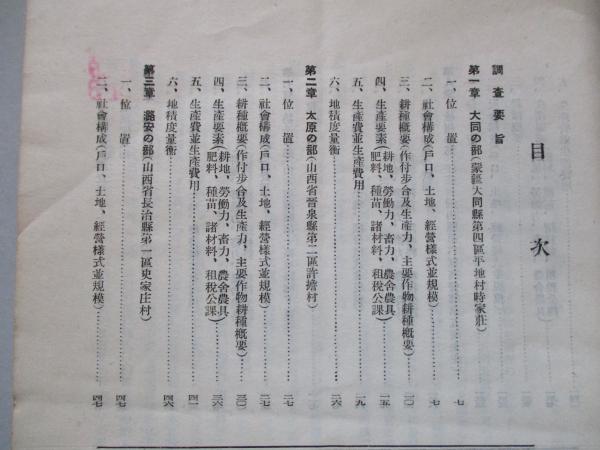 目次
調査要旨
第一章 大同の部(蒙疆大同縣第四區平地村時家莊)
一、位置……七
二、社會構成(戶口、土地、經營樣式並規模)……七
三、耕種概要(作付步合及生產力、主要作物耕種概要)……一〇
四、生產要素(耕地、勞働力、畜力、農舍農具、肥料、種苗、諸材料、租稅公課)……一五
五、生產費並生產費用……一九
六、地積度量衡……二六
第二章 太原の部(山西省晉泉縣第二區許壇村)
一、位置……二七
二、社會構成(戶口、土地、經營樣式並規模)……二七
三、耕種概要(作付步合及生產力、主要作物耕種概要)……三〇
四、生產要素(耕地、勞働力、畜力、農舍農具、肥料、種苗、諸材料、租稅公課)……三六
五、生產費並生產費用……四一
六、地積度量衡……四六
第三章 潞安の部(山西省長治縣第一區史家庄村)
一、位置……四七
二、社會構成(戶口、土地、經營樣式並規模)……四七